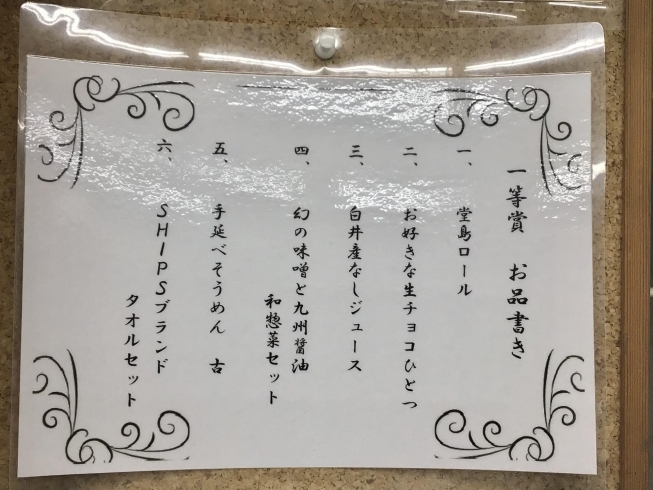 一等賞 お品書き
一、 堂島ロール
二、 お好きな生チョコひとつ
三、 白井産なしジュース
四、 幻の味噌と九州醤油
和惣菜セット
五、 手延べそうめん 古
六、 SHIPSブランド
タオルセット